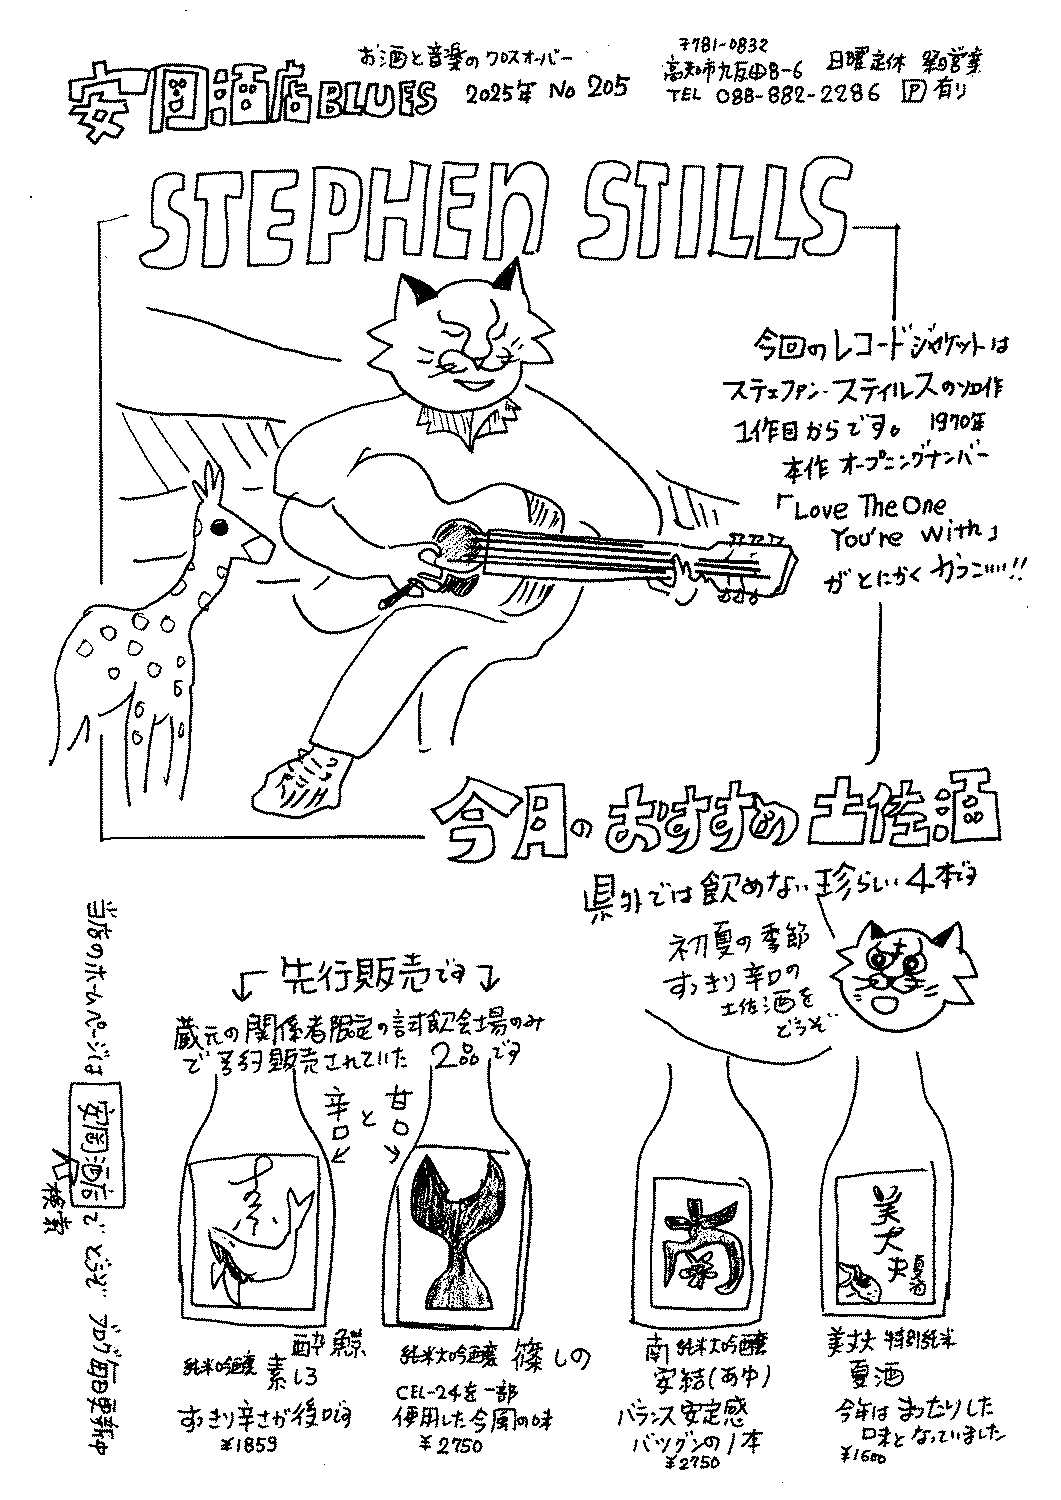 お酒と音楽のクロスオーバー
安岡酒店BLUES
2025年 No 205
〒781-0832
高知市九反田8-6
TEL 088-882-2286 P有り
日曜定休 祭日営業
STEPHEN STILLS
今回のレコードジャケットは
ステェファン・スティルスのソロ作
1作目からです。 1970年
本作 オープニングナンバー
「Love The One
You're With」
がとにかく かっこいい!!
今月の おすすめ 土佐酒
県外では飲めない 珍らしい 4本です
初夏の季節
すっきり辛口の
土佐酒を
どうぞ
先行販売です
蔵元の関係者限定の試飲会場のみ
で予約販売されていた 2品です
辛口 と 甘口
素
南
美丈夫
夏酒
酔鯨
純米吟醸 素 しろ
すっきり辛さが後口は
¥1859
純米大吟醸 篠 しの
CEL-24を一部
使用した今風の味
¥2750
南 純米大吟醸
安結(あゆ)
バランス安定感
バツグンの1本
¥2750
美丈夫 特別純米
夏酒
今年は まったりした
味となっていました
¥1600
当店のホームページは 安岡酒店 で どうぞ ブログ毎日更新中
検索